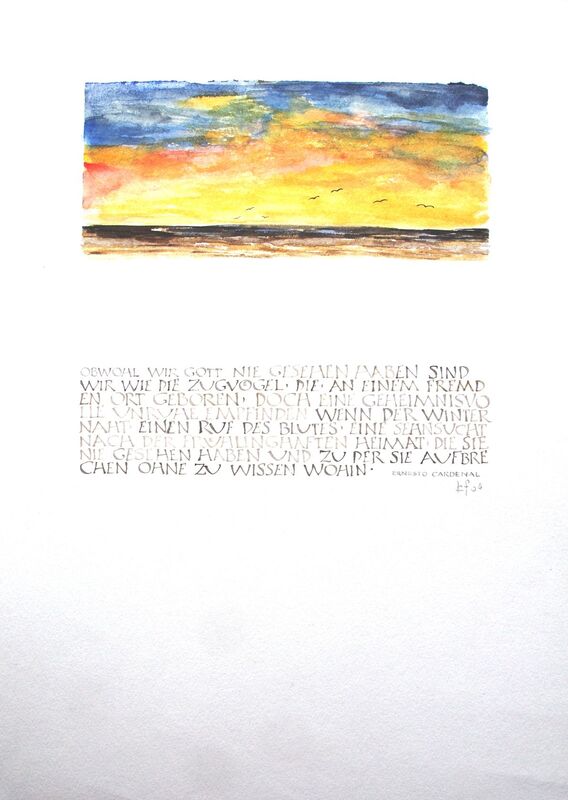 OBWOHL WIR GOTT NIE GESEHEN HABEN SIND
WIR WIE DIE ZUGVÖGEL · DIE · AN EINEM FREMD
EN ORT GEBOREN · DOCH EINE GEHEIMNISVO
LLE UNRUHE EMPFINDEN WENN DER WINTER
NAHT · EINEN RUF DES BLUTES · EINE SEHNSUCHT
NACH DER FRÜHLINGHAFTEN HEIMAT · DIE SIE
NIE GESEHEN HABEN UND ZU DER SIE AUFBRE
CHEN OHNE ZU WISSEN WOHIN · ERNESTO CARDENAL